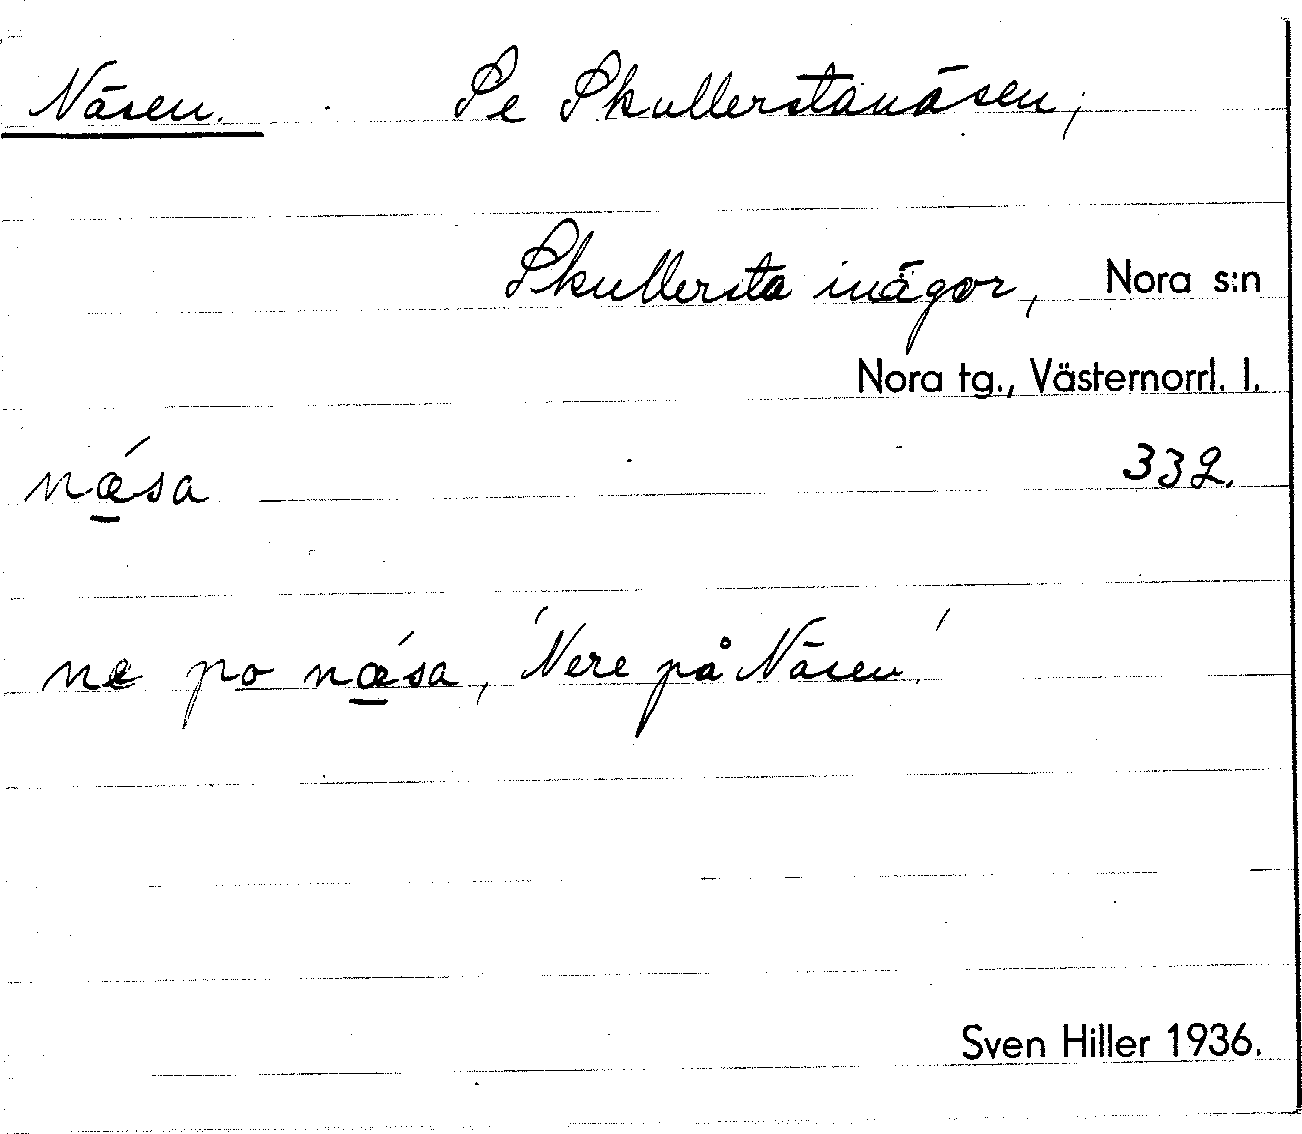 Näsen. Se Skullerstanäsen,
Skullersta inägor, Nora s:n
Nora tg., Västernorrl. l.
nǽ̲sa 332.
ne po nǽ̲sa, 'Nere på Näsen.'
Sven Hiller 1936.